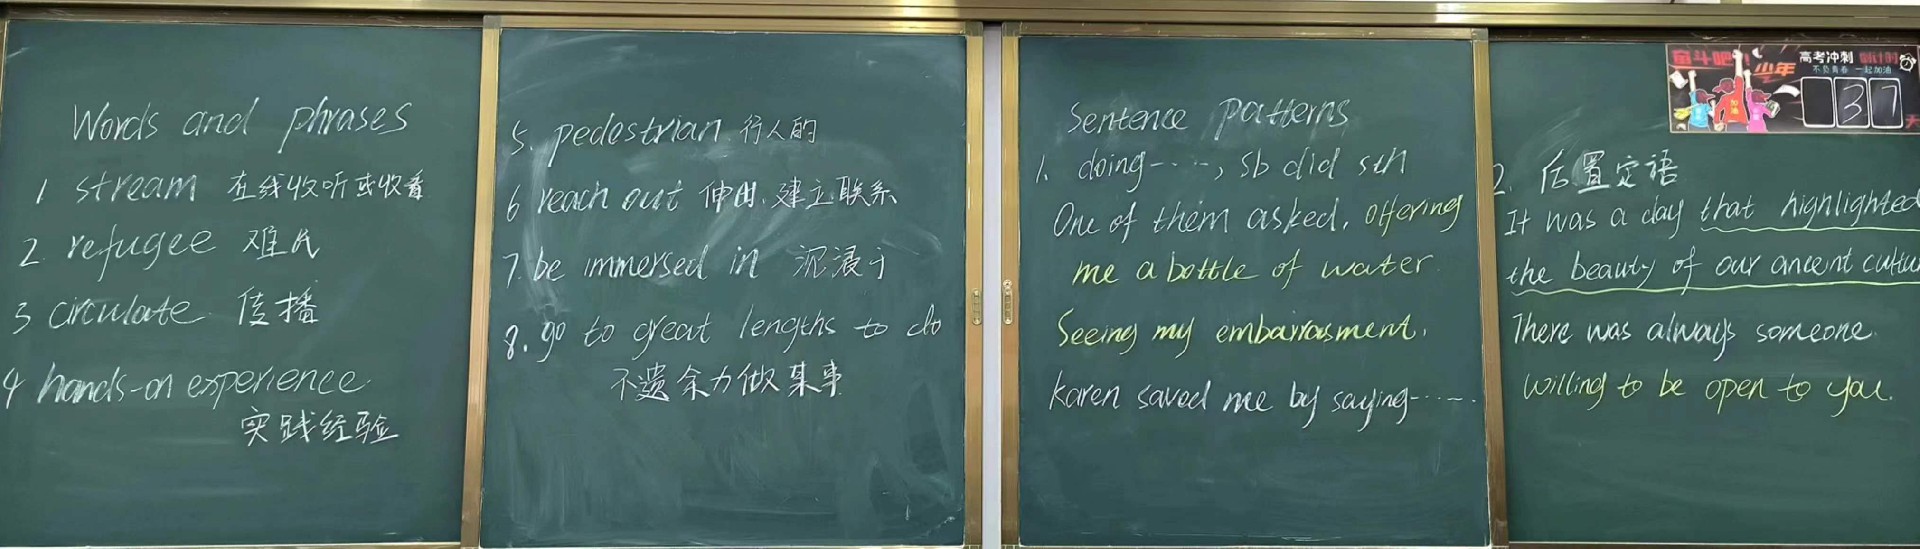 Words and phrases
1 stream 在线收听或收看
2. refugee 难民
3 circulate 传播
4 hands-on experience
实践经验
5. pedestrian 行人的
6 reach out 伸出、建立联系
7. be immersed in 沉浸于
8. go to great lengths to do
不遗余力做某事
Sentence patterns
1. doing ······, sb did sth
One of them asked, offering
me a bottle of water.
Seeing my embarrasment,
Karen saved me by saying ······
2. 后置定语
It was a day that highlighted
the beauty of our ancent cultu
There was always someone
willing to be open to you.
奋斗吧
少年
高考冲刺 倒计时
不负青春 一起加油
加油
37
天